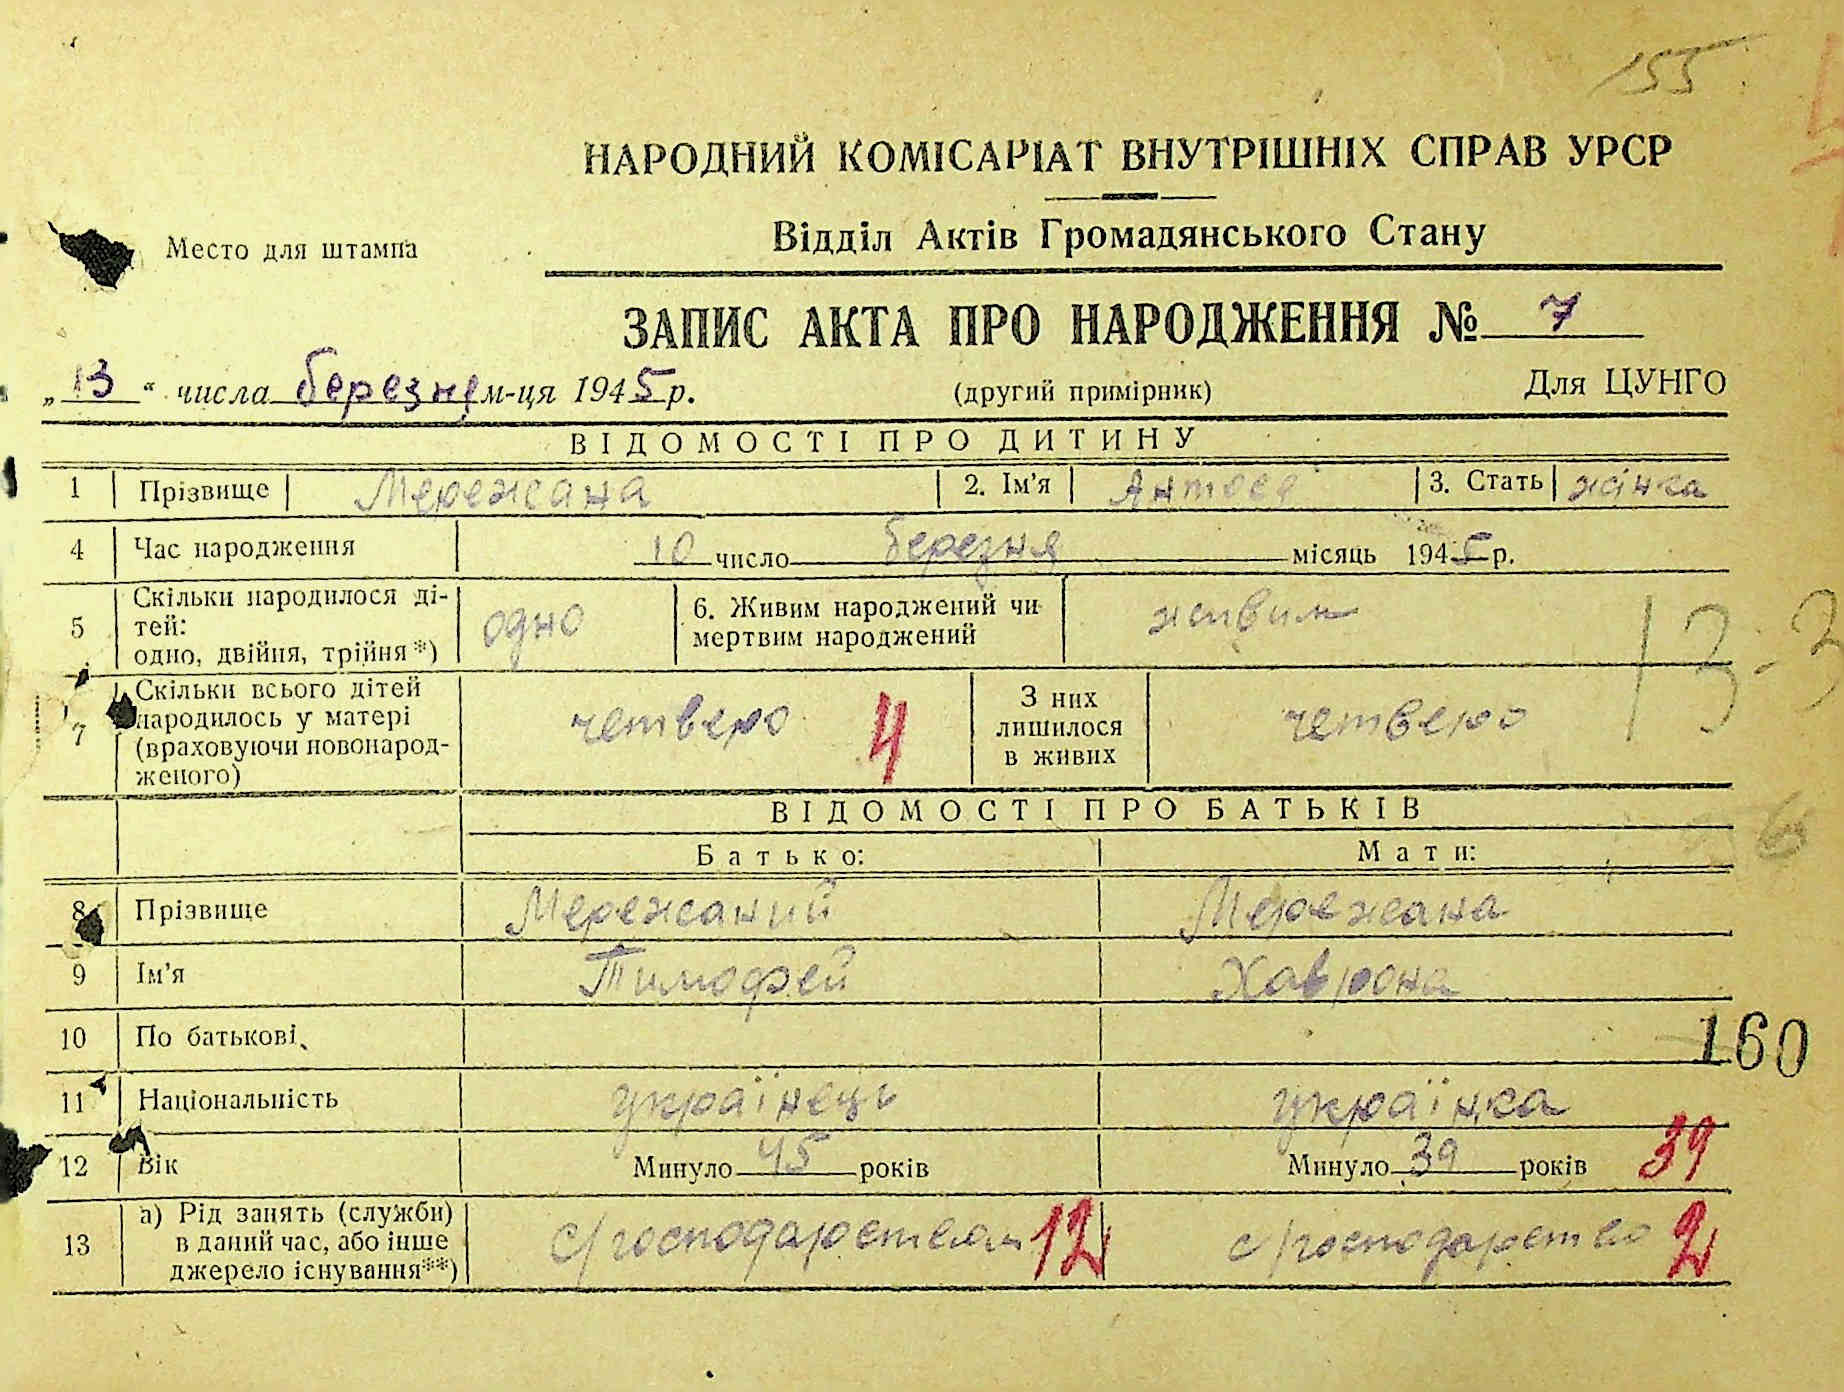 155
НАРОДНИЙ КОМІСАРІАТ ВНУТРІШНІХ СПРАВ УРСР
Відділ Актів Громадянського Стану
Место для штампа
ЗАПИС АКТА ПРО НАРОДЖЕННЯ № 7
„13“ числа березня м-ця 1945 р. (другий примірник) Для ЦУНГО
ВІДОМОСТІ ПРО ДИТИНУ
1 Прізвище Мережана 2. Ім'я 3. Стать жінка
4 Час народження 10 число березня місяць 1945 р.
5 Скільки народилося ді-
тей:
одно, двійня, трійня*) одно 6. Живим народжений чи
мертвим народжений живим
13-3
7 Скільки всього дітей
народилось у матері
(враховуючи новонарод-
женого) четверо 4 З них
лишилося
в живих четверо
ВІДОМОСТІ ПРО БАТЬКІВ
Батько: Мати:
6
8 Прізвище Мережаний Мережана
9 Ім'я Тимофей Хаврона
10 По батькові
160
11 Національність українець українка
12 Вік Минуло 45 років Минуло 39 років 39
13 а) Рід занять (служби)
в даний час, або інше
джерело існування**) с/господарством 12 с/господарство 2